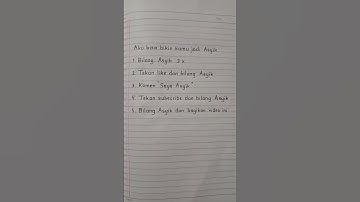 Aku bisa bikin kamu jadi Asyik
1. Bilang Asyik 3 x
2. Tekan like dan bilang Asyik
3. Komen "Saya Asyik"
4. Tekan subscribe dan bilang Asyik
5. Bilang Asyik dan bagikan video ini